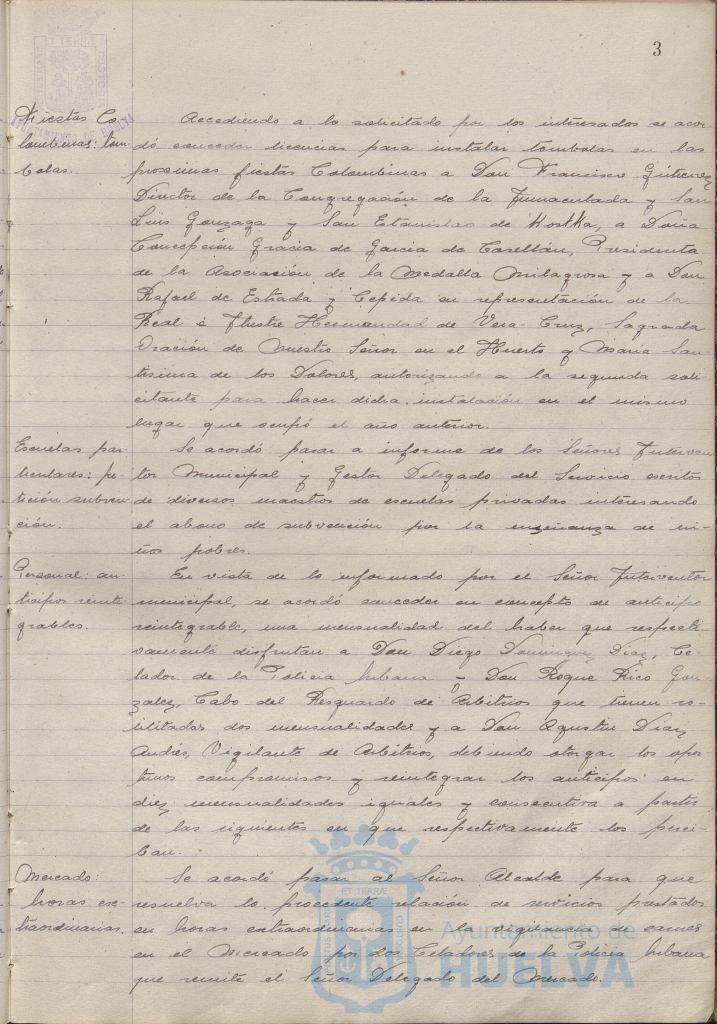 3
Fiestas Co-
lombinas: tóm-
bolas.
Accediendo a lo solicitado por los interesados se acor-
dó conceder licencias para instalar tombolas en las
proximas fiestas Colombinas a Don Francisco Gutierrez
Director de la Congregación de la Inmaculada y San
Luis Gonzaga y San Estanislao de Kostka, a Doña
Concepción Gracia de Garcia de Castellón, Presidenta
de la Asociación de la Medalla Milagrosa y a Don
Rafael de Estrada y Cepeda en representación de la
Real é Ilustre Hermandad de Vera-Cruz, Sagrada
Oración de Nuestro Señor en el Huerto y Maria San-
tisima de los Dolores, autorizando a la segunda soli-
citante para hacer dicha instalación en el mismo
lugar que ocupó el año anterior.
Escuelas par-
ticulares: pe-
tición subven-
ción.
Se acordó pasar a informe de los Señores Interven-
tor Municipal y Gestor Delegado del Servicio escritos
de diversos maestros de escuelas privadas interesando
el abono de subvención por la enseñanza de ni-
ños pobres.
Personal: an-
ticipos reinte-
grables.
En vista de lo informado por el Señor Interventor
municipal, se acordó conceder en concepto de anticipo
reintegrable, una mensualidad del haber que respecti-
vamente disfrutan a Don Diego Dominguez Diaz, Ce-
lador de la Policia Urbana y Don Roque Rico Gon-
zalez, Cabo del Resguardo de Arbitrios que tienen so-
licitadas dos mensualidades y a Don Agustin Diaz
Andrés, Vigilante de Arbitrios, debiendo otorgar los opor-
tunos compromisos y reintegrar los anticipos en
diez mensualidades iguales y consecutiva a partir
de las siguientes en que respectivamente los perci-
ban.
Mercado:
horas ex-
traordinarias.
Se acordó pasar al Señor Alcalde para que
resuelva lo procedente relación de servicios prestados
en horas extraordinarias en la vigilancia de carnes
en el Mercado por dos Celadores de la Policia Urbana
que remite el Señor Delegado del Mercado.
Ayuntamiento de
HUELVA